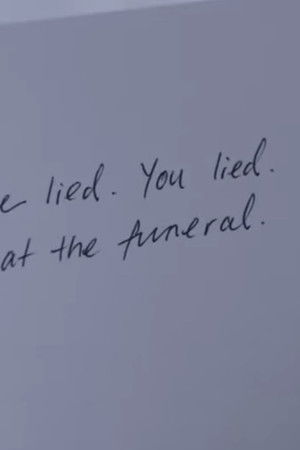 e lied. You lied.
at the funeral.